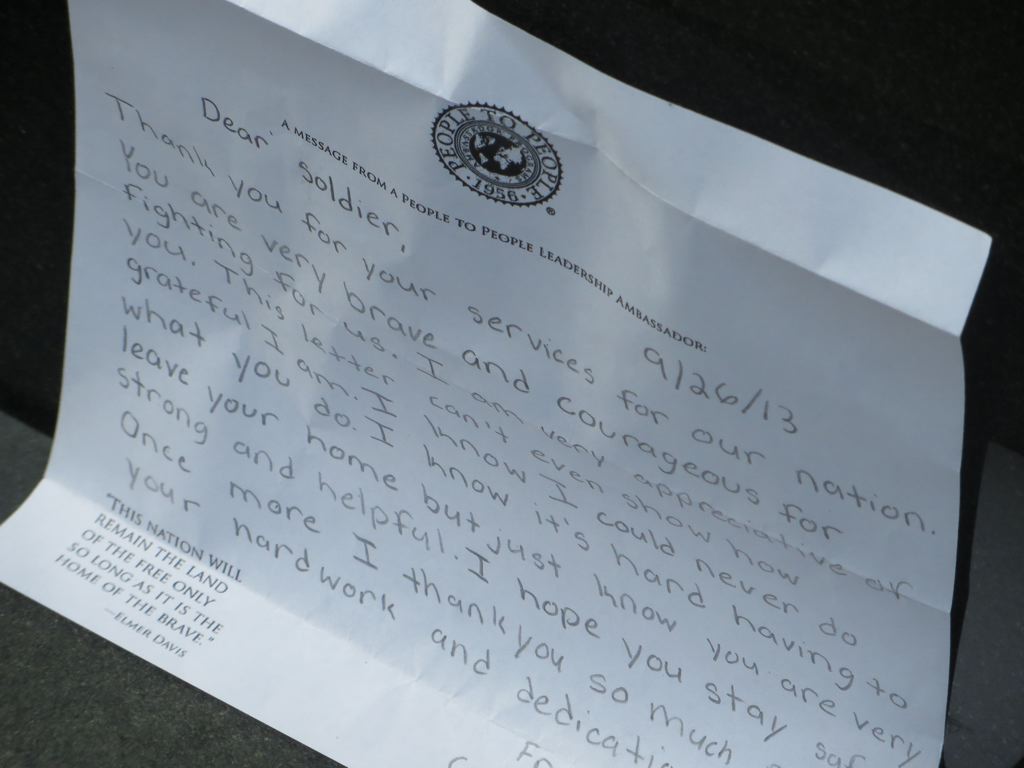 PEOPLE TO PEOPLE
1956
®
A MESSAGE FROM A PEOPLE TO PEOPLE LEADERSHIP AMBASSADOR:
9/26/13
Dear soldier,
Thank you for your services for our nation.
You are very brave and courageous for
fighting for us. I am very appreciative of
you. This letter can't even show how
grateful I am. I know I could never do
what you do. I know it's hard having to
leave your home but just know you are very
strong and helpful. I hope you stay saf
Once more I thank you so much
your hard work and dedicati
Fr
THIS NATION WILL
REMAIN THE LAND
OF THE FREE ONLY
SO LONG AS IT IS THE
HOME OF THE BRAVE."
—ELMER DAVIS